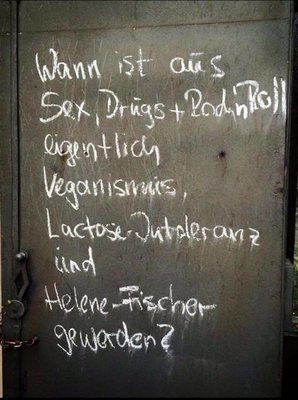 Wann ist aus
Sex, Drugs + Rock'n Roll
eigentlich
Veganismus,
Lactose-Intoleranz
und
Helene-Fischer
geworden?